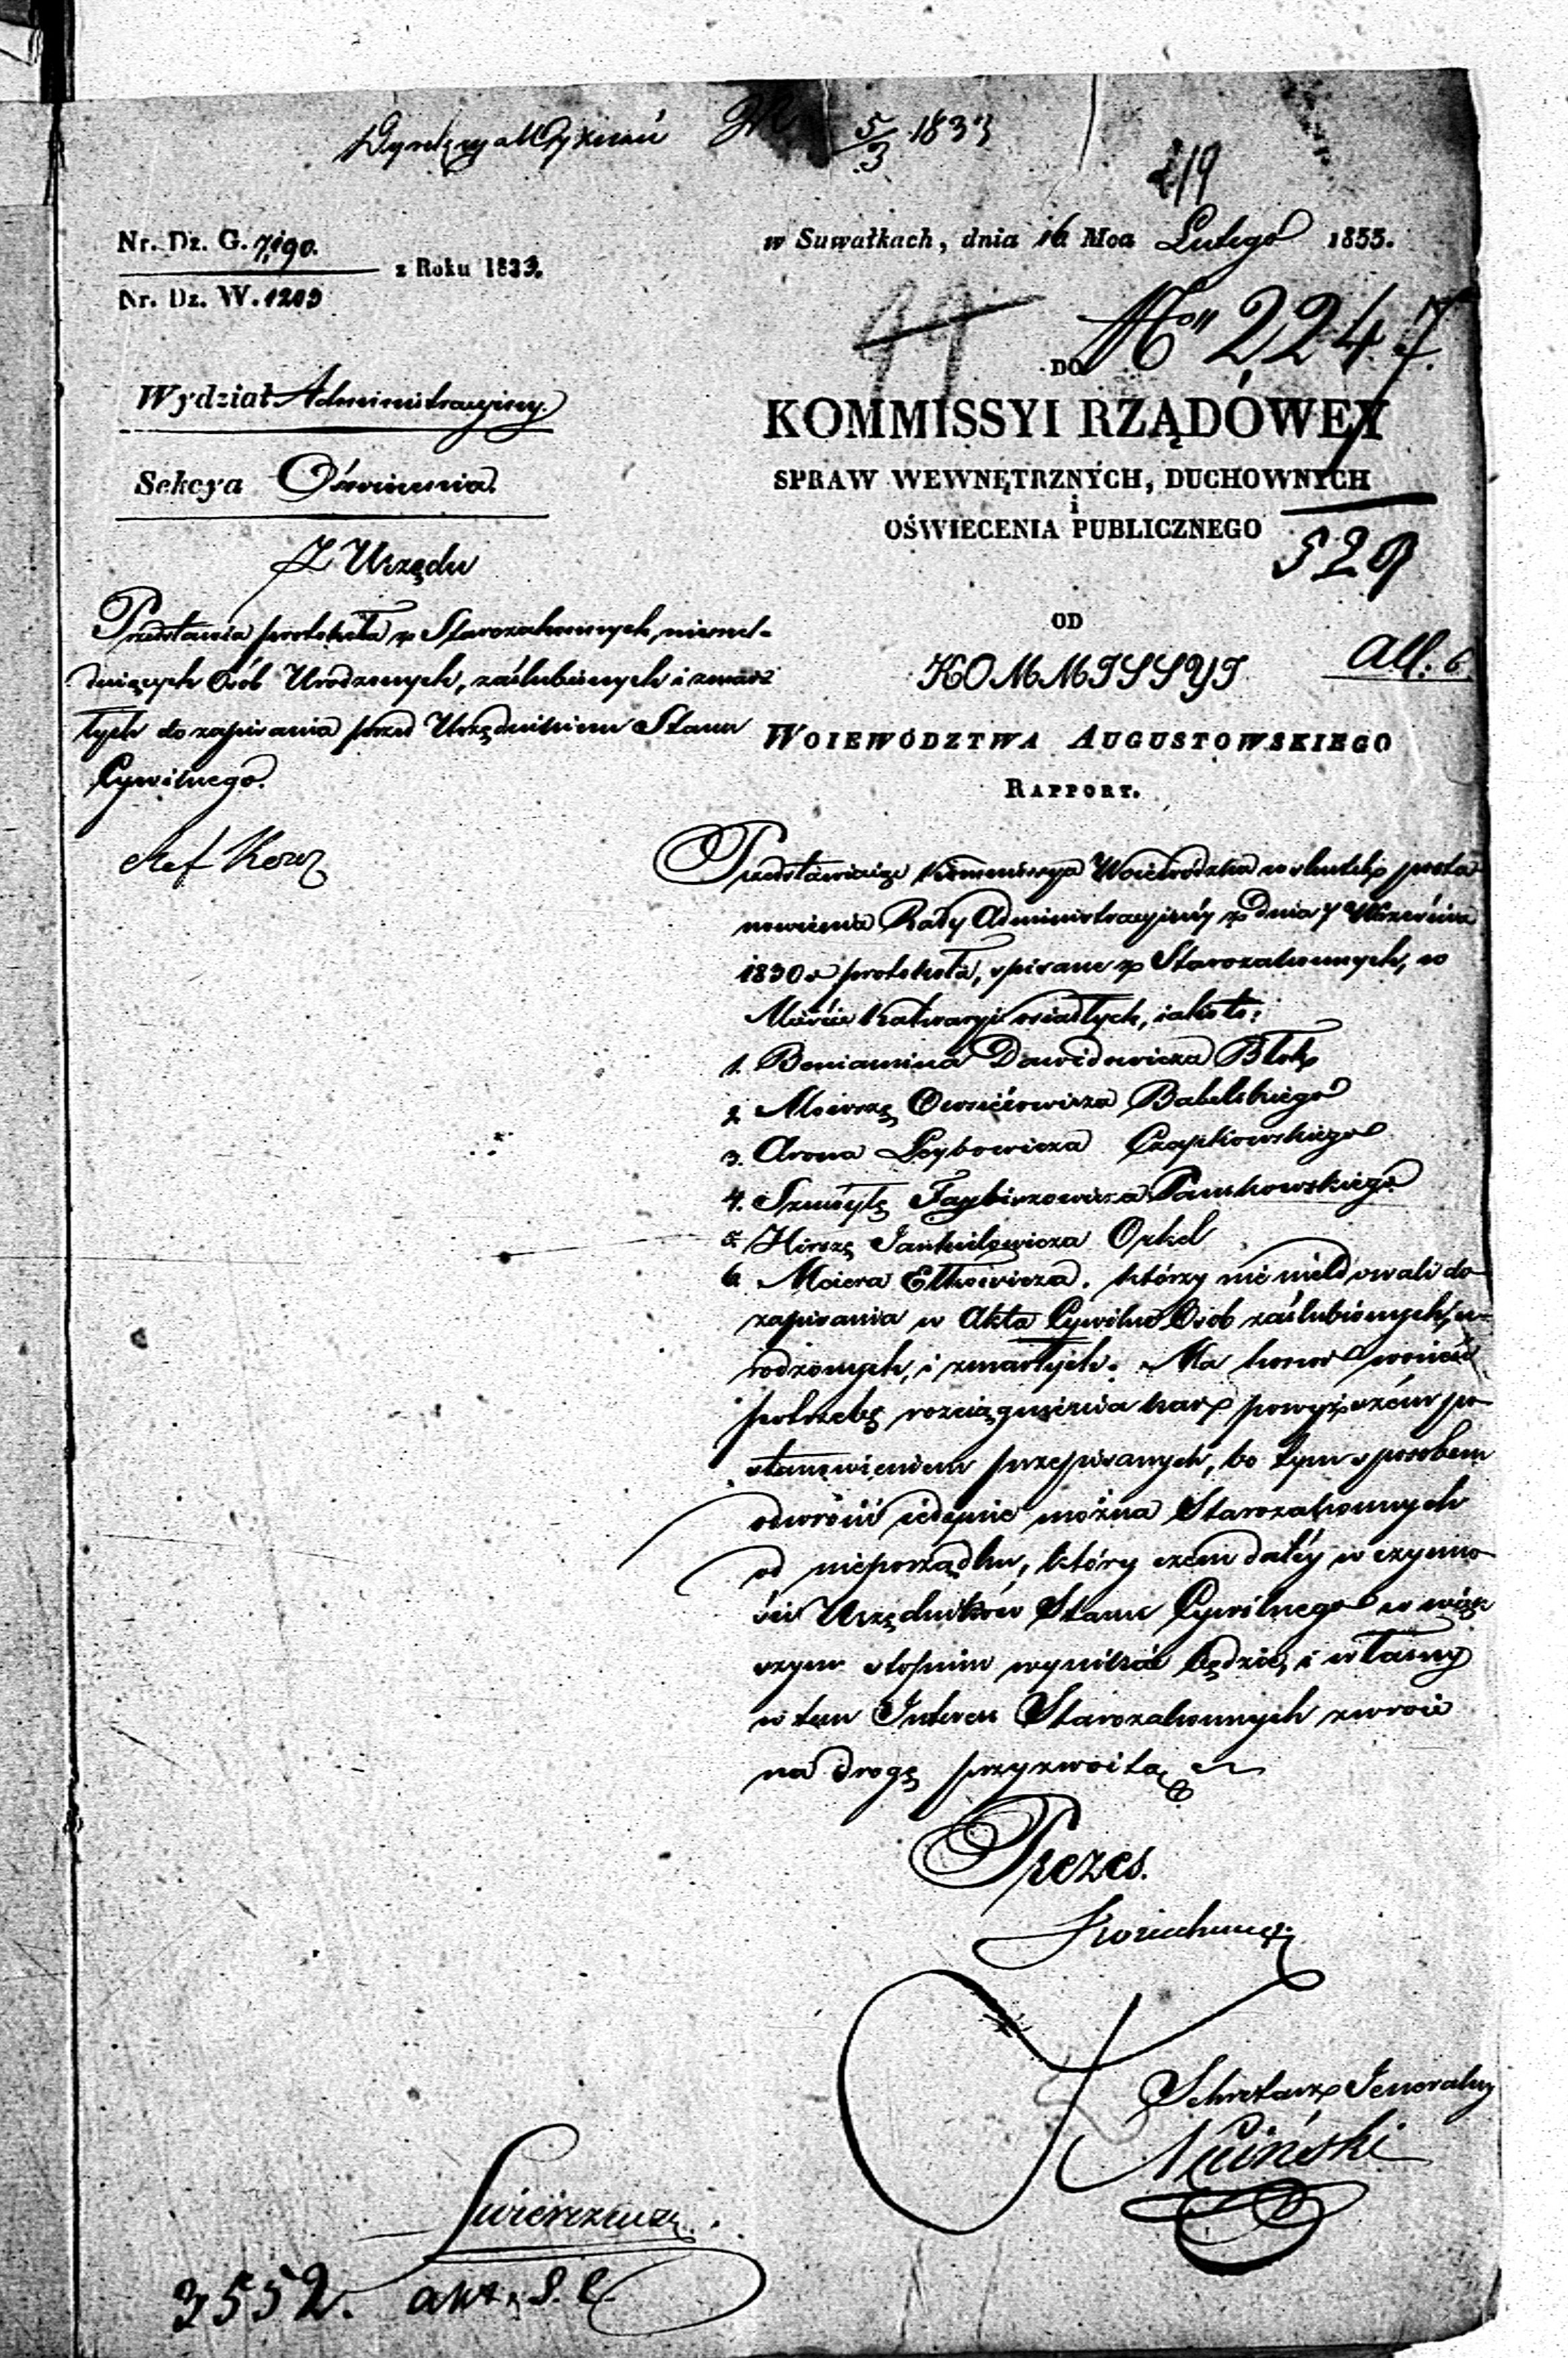 5/3 1833
219
Nr. Dz. G. 7,190.
z Roku 1833.
Nr. Dz. W. 1209
w Suwałkach, dnia 16 Mca Lutego 1833.
44
No 2247.
Wydział Administracyiny.
Sekcya Oświecenia.
DO
KOMMISSYI RZĄDÓWEY
SPRAW WEWNĘTRZNYCH, DUCHOWNYCH
i
OŚWIECENIA PUBLICZNEGO
529
Z Urzędu
Przedstawia protokuła z Starozakonnych, niemel-
duiących Osób Urodzonych, zaślubionych i zmar
łych do zapisania przed Urzędnikiem Stanu
Cywilnego.
Ref
OD
KOMMISSYI
All: 6.
WOIEWÓDZTWA AUGUSTOWSKIEGO
RAPPORT.
Przedstawiaiąc Kommissya Woiewódzka w skutek posta
nowienia Rady Administracyinéy z dnia 7 Września
1830 r protokuła, spisane z Starozakonnych, w
Mieście Kalwaryi osiadłych, iako to:
1. Beniamina Dawidowicza Blok
2. Mowszę Owsieiowicza Babelskiego
3. Arona Leybowicza Czapkowskiego
4. Szmuylę Faybiszowicza Pankowskiego
5. Hirszę Jankielowicza Opkel
6. Meiera Elkowicza. którzy nie meldowali do
zapisania w Akta Cywilne Osób zaślubionych, u-
rodzonych, i zmarłych. Ma honor wnieść
potrzebę rozciągnienia kar powyższém po
stanowieniem przepisanych, bo tym sposobem
odwrócić iedynie można Starozakonnych
od nieporządku, który czem daléy w czynno
ści Urzędników Stanu Cywilnego w więk
szym stopniu wynikać będzie, i w tamy
w tem Interes Starozakonnych zwrócić
na drogę przyzwoitą
Prezes.
Sekretarz Jeneralny
3552.